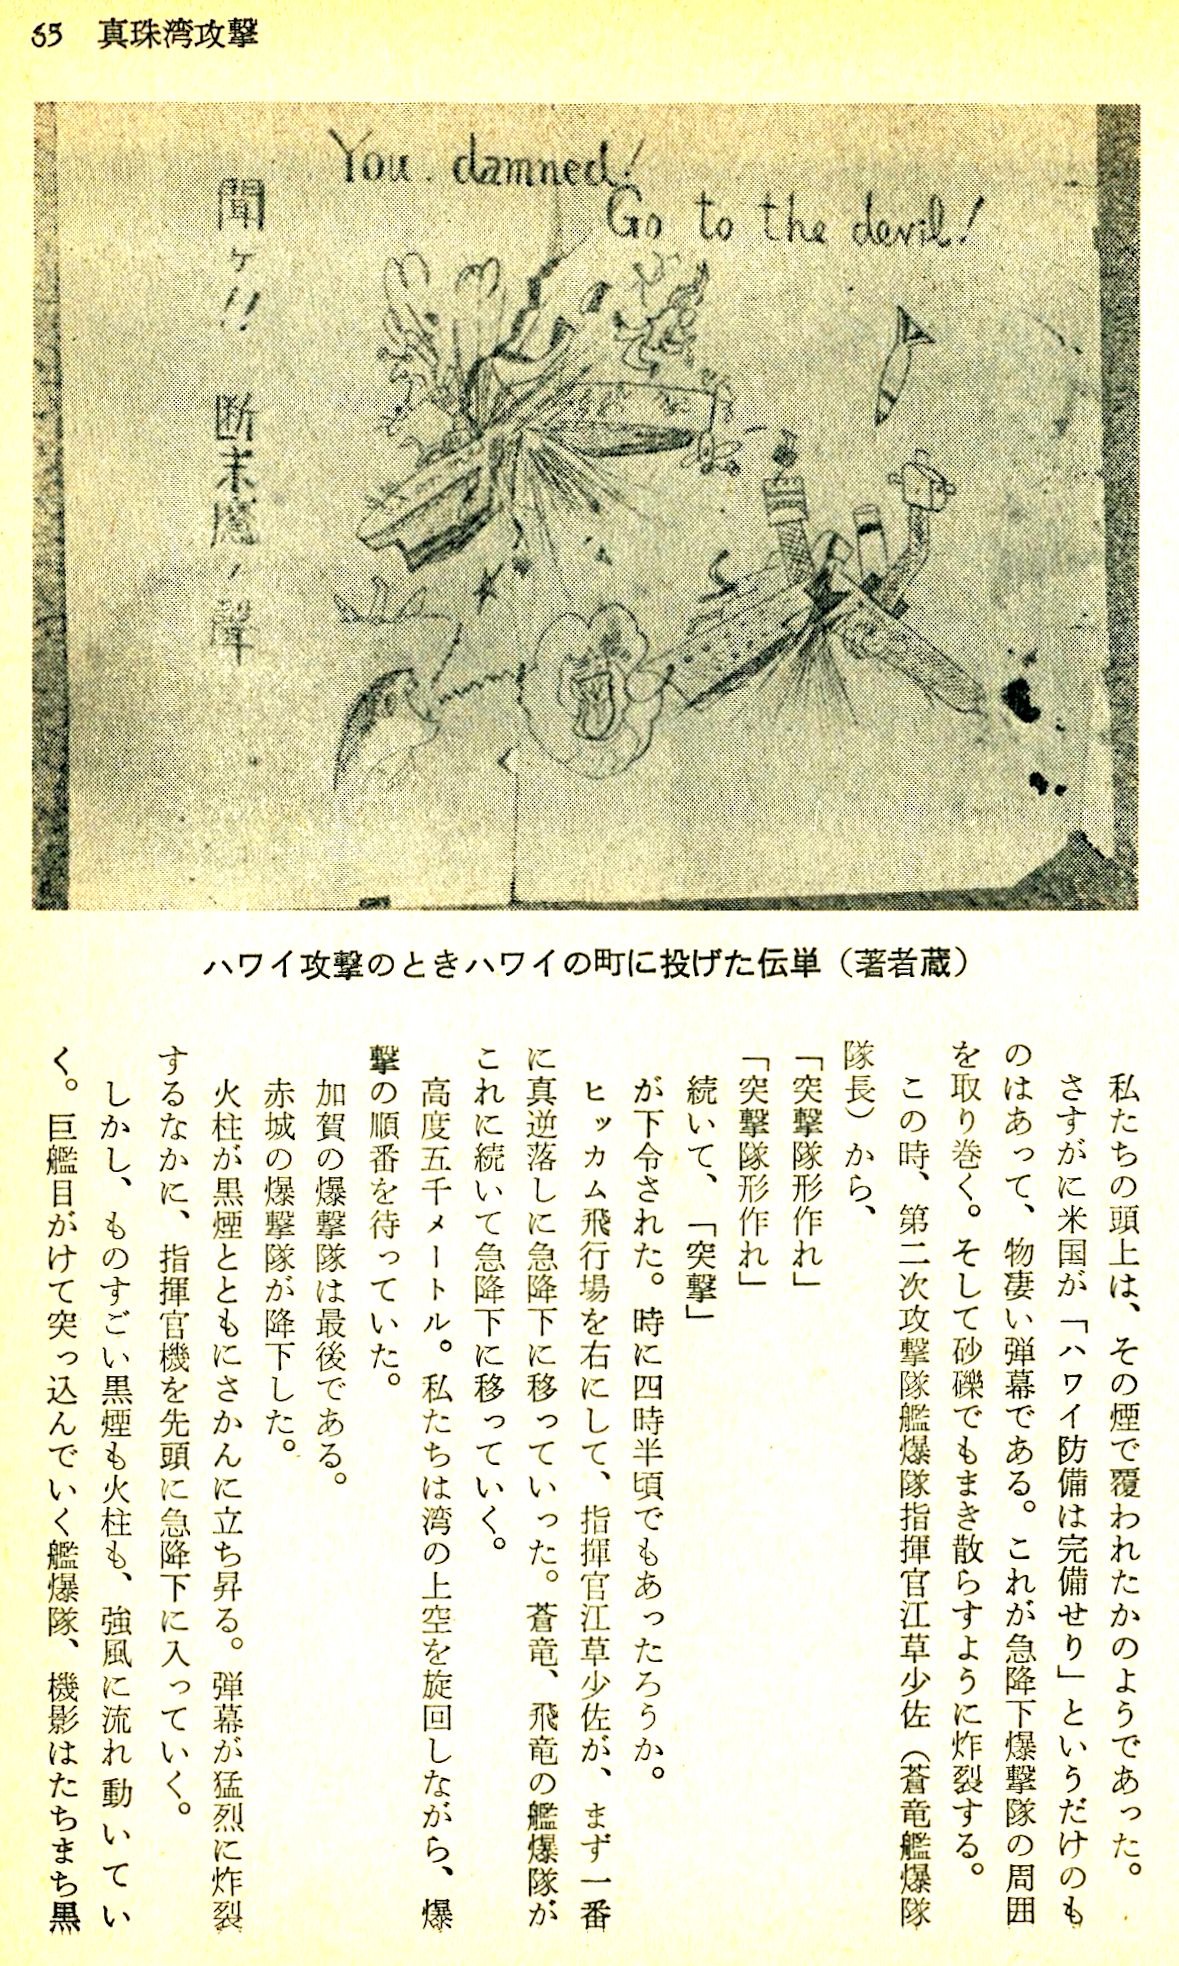 65 真珠湾攻撃
You damned!
Go to the devil!
聞ケ!! 断末魔ノ聲
ハワイ攻撃のときハワイの町に投げた伝単（著者蔵）
私たちの頭上は、その煙で覆われたかのようであった。
さすがに米国が「ハワイ防備は完備せり」というだけのも
のはあって、物凄い弾幕である。これが急降下爆撃隊の周囲
を取り巻く。そして砂礫でもまき散らすように炸裂する。
この時、第二次攻撃隊艦爆隊指揮官江草少佐（蒼竜艦爆隊
隊長）から、
「突撃隊形作れ」
「突撃隊形作れ」
続いて、「突撃」
が下令された。時に四時半頃でもあったろうか。
ヒッカム飛行場を右にして、指揮官江草少佐が、まず一番
に真逆落しに急降下に移っていった。蒼竜、飛竜の艦爆隊が
これに続いて急降下に移っていく。
高度五千メートル。私たちは湾の上空を旋回しながら、爆
撃の順番を待っていた。
加賀の爆撃隊は最後である。
赤城の爆撃隊が降下した。
火柱が黒煙とともにさかんに立ち昇る。弾幕が猛烈に炸裂
するなかに、指揮官機を先頭に急降下に入っていく。
しかし、ものすごい黒煙も火柱も、強風に流れ動いてい
く。巨艦目がけて突っ込んでいく艦爆隊、機影はたちまち黒